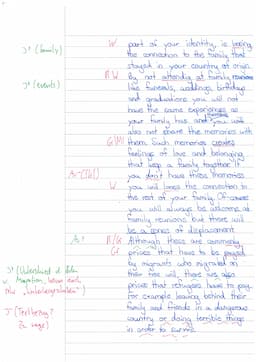 W part of your identity, is losing
the connection to the family that
J+ (family) stayed in your country of origin.
RW By not attending at family reunions
J+ (events) like funerals, weddings, birthdays
and graduations you will not
have the same experiences as
your family has and you will
also not share the memories with
Gr/M them. Such memories creates
feelings of love and belonging
that keep a family together. If
you don't have these memories
W you will loose the connection to
the rest of your family. Of course
you will always be welcome at
family reunions but there will
be a sense of displacement.
R/G Although these are commonly
Gr prices that have to be payed
by migrants who migrated of
their free will, there are also
prices that refugees have to pay,
for example leaving behind their
family and friends in a dangerous
country or doing terrible things
in order to survive.